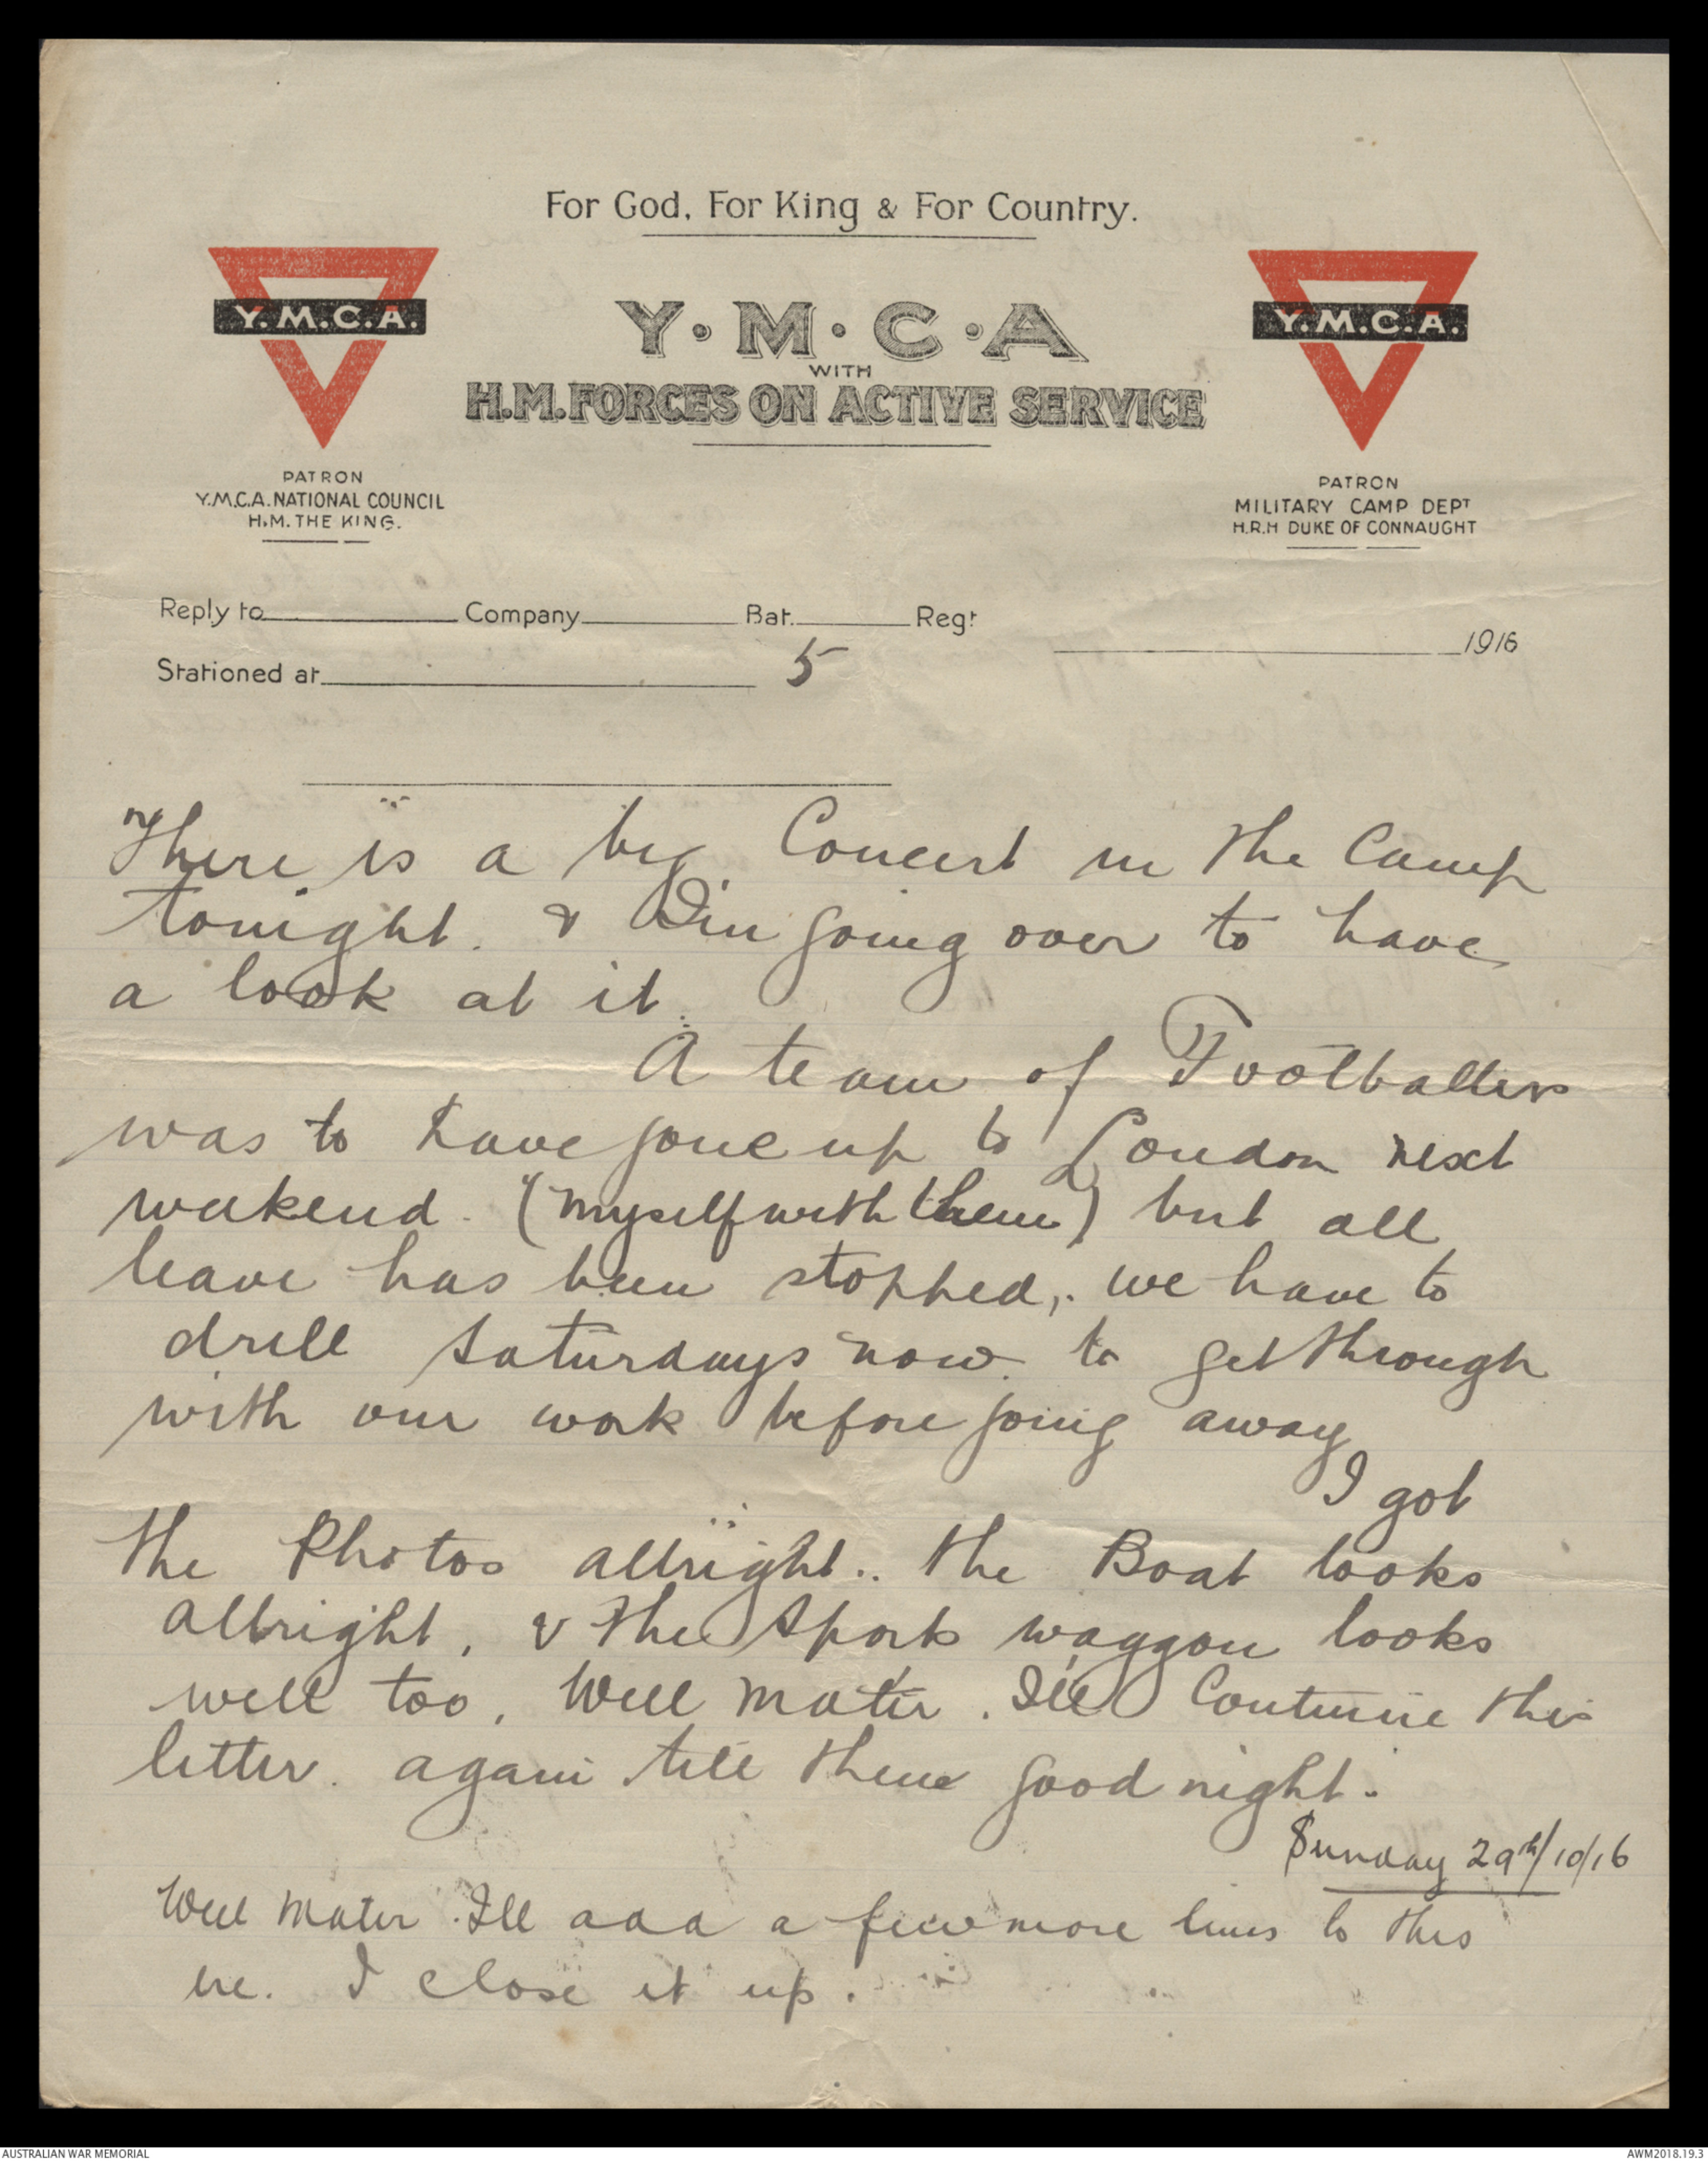 For God, For King & For Country.
Y.M.C.A.
Y.M.C.A
WITH
H.M. FORCES ON ACTIVE SERVICE
Y.M.C.A.
PATRON
Y.M.C.A. NATIONAL COUNCIL
H.M. THE KING.
PATRON
MILITARY CAMP DEPT
H.R.H DUKE OF CONNAUGHT
Reply to Company Bat. Regt
1916
Stationed at
5
There is a big Concert in the Camp
tonight. & I'm going over to have
a look at it.
A team of Footballers
was to have gone up to London next
weekend. (myself with them) but all
leave has been stopped, we have to
drill Saturdays now to get through
with our work before going away
I got
the Photos allright.. the Boat looks
allright, & the Sports waggon looks
well too, Well Mater. I'll Continue this
letter. again till then good night.
Sunday 29th/10/16
Well Mater I'll add a few more lines to this
ere. I close it up.
AUSTRALIAN WAR MEMORIAL
AWM2018.19.3